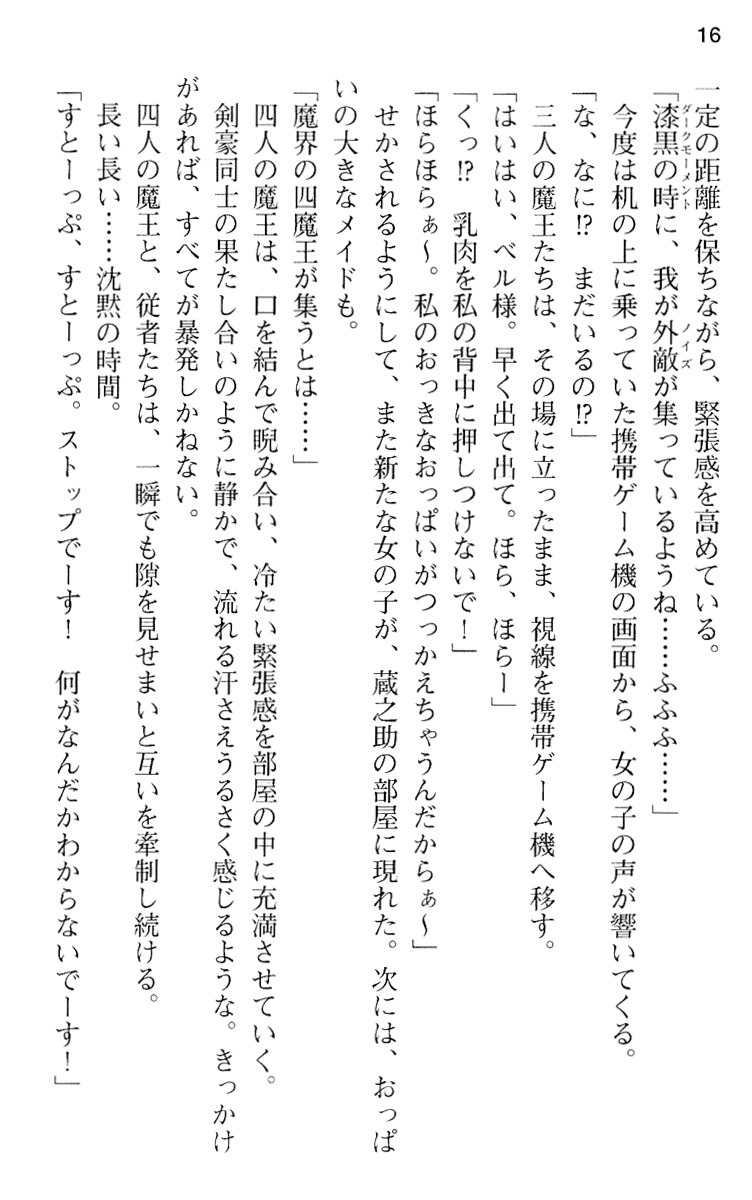 16
一定の距離を保ちながら、緊張感を高めている。
「漆黒の時に、我が外敵が集っているようね……ふふふ……」
ダークモーメント
ノイズ
今度は机の上に乗っていた携帯ゲーム機の画面から、女の子の声が響いてくる。
「な、なに!?　まだいるの!?」
三人の魔王たちは、その場に立ったまま、視線を携帯ゲーム機へ移す。
「はいはい、ベル様。早く出て出て。ほら、ほらー」
「くっ!?　乳肉を私の背中に押しつけないで！」
「ほらほらぁ～。私のおっきなおっぱいがつっかえちゃうんだからぁ～」
せかされるようにして、また新たな女の子が、蔵之助の部屋に現れた。次には、おっぱ
いの大きなメイドも。
「魔界の四魔王が集うとは……」
四人の魔王は、口を結んで睨み合い、冷たい緊張感を部屋の中に充満させていく。
剣豪同士の果たし合いのように静かで、流れる汗さえうるさく感じるような。きっかけ
があれば、すべてが暴発しかねない。
四人の魔王と、従者たちは、一瞬でも隙を見せまいと互いを牽制し続ける。
長い長い……沈黙の時間。
「すとーっぷ、すとーっぷ。ストップでーす！　何がなんだかわからないでーす！」